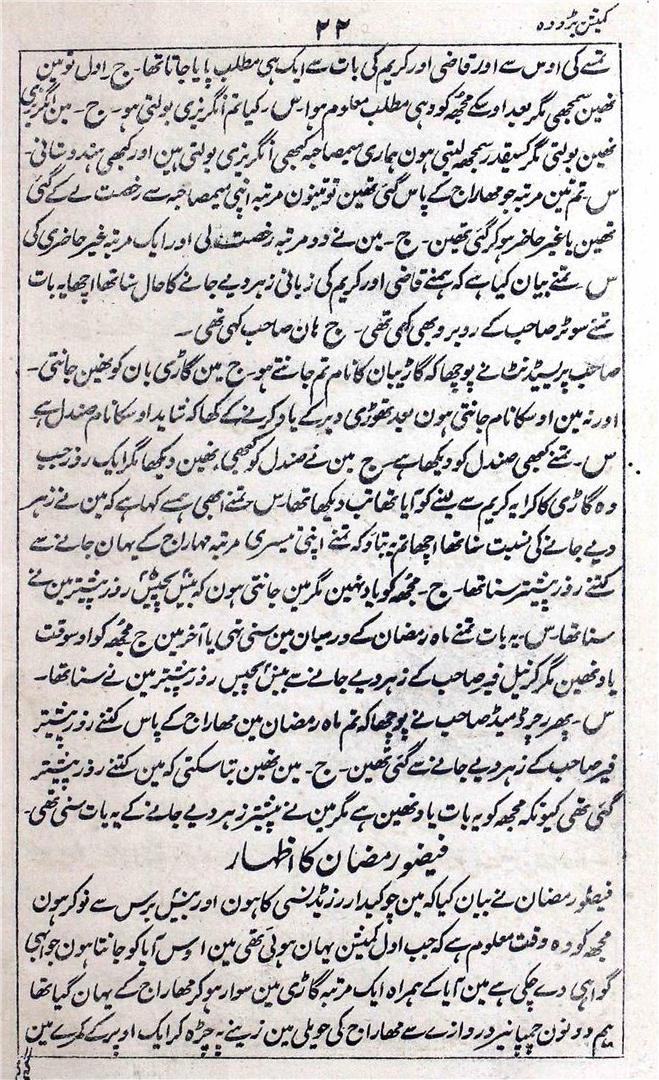 کمیشن بڑودہ
۲۲
تمسے کی اوس سے اور قاضی اور کریم کی بات سے ایک ہی مطلب پایا جاتا تھا۔ ج۔ اول تو مین
نھین سمجھی مگر بعد اوسکے مجھکو وہی مطلب معلوم ہوا۔ س۔ کیا تم انگریزی بولتی ہو۔ ج۔ مین انگریزی
نھین بولتی مگر کسیقدر سمجھ لیتی ہون ہماری میمصاحبہ کبھی انگریزی بولتی ہین اور کبھی ہندوستانی۔
س۔ تم تین مرتبہ جو مہاراج کے پاس گئی تھین تو تینون مرتبہ اپنی میمصاحبہ سے رخصت لے کے گئی
تھین یا غیر حاضر ہوکر گئی تھین۔ ج۔ مین نے دو مرتبہ رخصت لی اور ایک مرتبہ غیر حاضری کی
س۔ تمنے بیان کیا ہے کہ ہمنے قاضی اور کریم کی زبانی زہر دیے جانے کا حال سنا تھا اچھا یہ بات
تمنے سوٹر صاحب کے روبرو بھی کہی تھی۔ ج ہان صاحب کہی تھی ۔
صاحب پریسیڈنٹ نے پوچھا کہ گاڑیبان کا نام تم جانتے ہو۔ ج۔ مین گاڑی بان کو نھین جانتی۔
اور نہ مین اوسکا نام جانتی ہون بعد تھوڑی دیر کے یاد کرنے کے کہا کہ شاید اوسکا نام صندل ہے
س۔ تمنے کبھی صندل کو دیکھا ہے۔ ج مین نے صندل کو کبھی نھین دیکھا مگر ایک روز جب
وہ گاڑی کا کرایہ کریم سے لینے کو آیا تھا تب دیکھا تھا۔ س تمنے ابھی ہمسے کہا ہے کہ مین نے زہر
دیے جانے کی نسبت سنا تھا اچھا تم یہ بتاؤ کہ تمنے اپنی تیسری مرتبہ مہاراج کے یہان جانے سے
کتنے روز پیشتر سنا تھا۔ ج۔ مجھکو یاد نھین مگر مین جانتی ہون کہ بیس پچیس روز پیشتر مین نے
سنا تھا۔ س۔ یہ بات تمنے ماہ رمضان کے درمیان مین سنی تھی یا آخر مین ج مجھکو اوسوقت
یاد نھین مگر کرنیل فیر صاحب کے زہر دیے جانے سے بیس پچیس روز پیشتر مین نے سنا تھا۔
س۔ پھر رچرڈ میڈ صاحب نے پوچھا کہ تم ماہ رمضان مین مہاراج کے پاس کتنے روز پیشتر
فیر صاحب کے زہر دیے جانے سے گئی تھین۔ ج۔ مین نھین بتا سکتی کہ مین کتنے روز پیشتر
گئی تھی کیونکہ مجھکو یہ بات یاد نھین ہے مگر مین نے پیشتر زہر دیے جانے کے یہ بات سنی تھی۔
فیضور رمضان کا اظہار
فیضور رمضان نے بیان کیا کہ مین چوکیدار رزیڈنسی کا ہون اور بیس برس سے نوکر ہون
مجھکو وہ وقت معلوم ہے کہ جب اول کمیشن یہان ہوئی تھی مین اوس آیا کو جانتا ہون جو ابھی
گواہی دے چکی ہے مین آیا کے ہمراہ ایک مرتبہ گاڑی مین سوار ہوکر مہاراج کے یہان گیا تھا
ہم دونون چمپانیر دروازے سے مہاراج کی حویلی مین زینے پہ چڑہ کر ایک اوپر کے کمرے مین